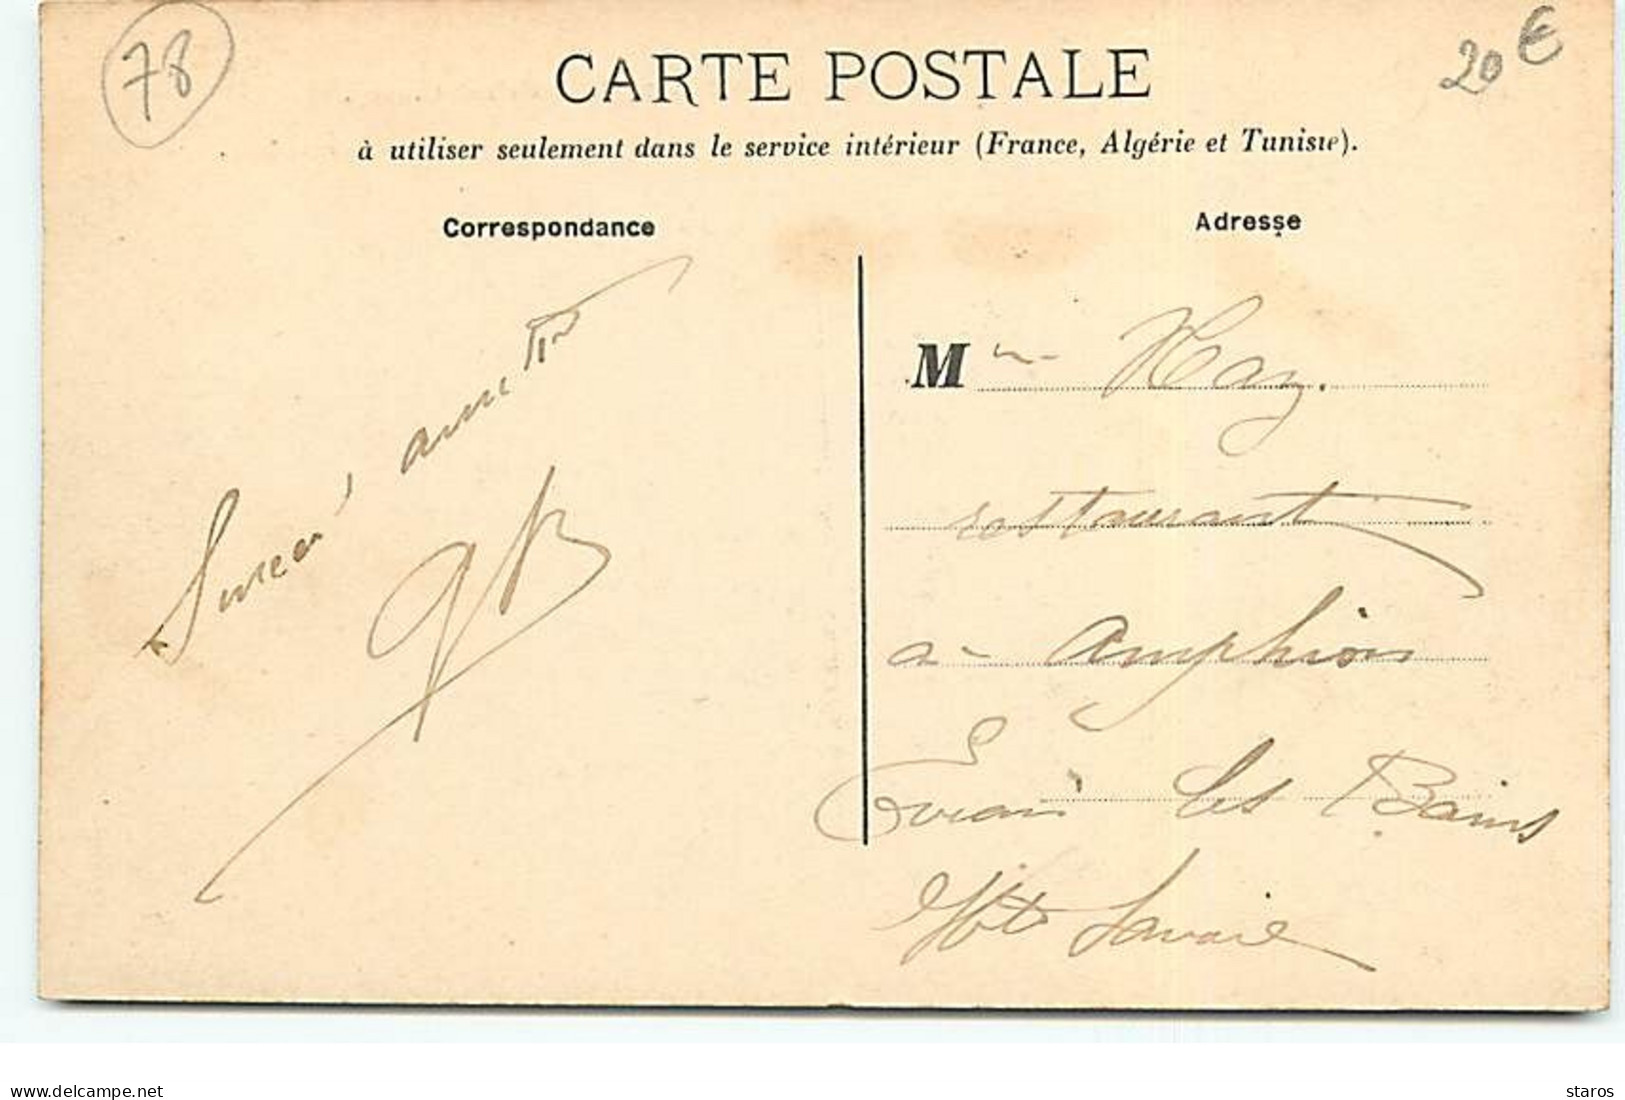 78
20 €
CARTE POSTALE
à utiliser seulement dans le service intérieur (France, Algérie et Tunisie).
Correspondance
Adresse
M
restaurant
a Amphion
Evian les Bains
Hte Savoie
delcampe.net
staros